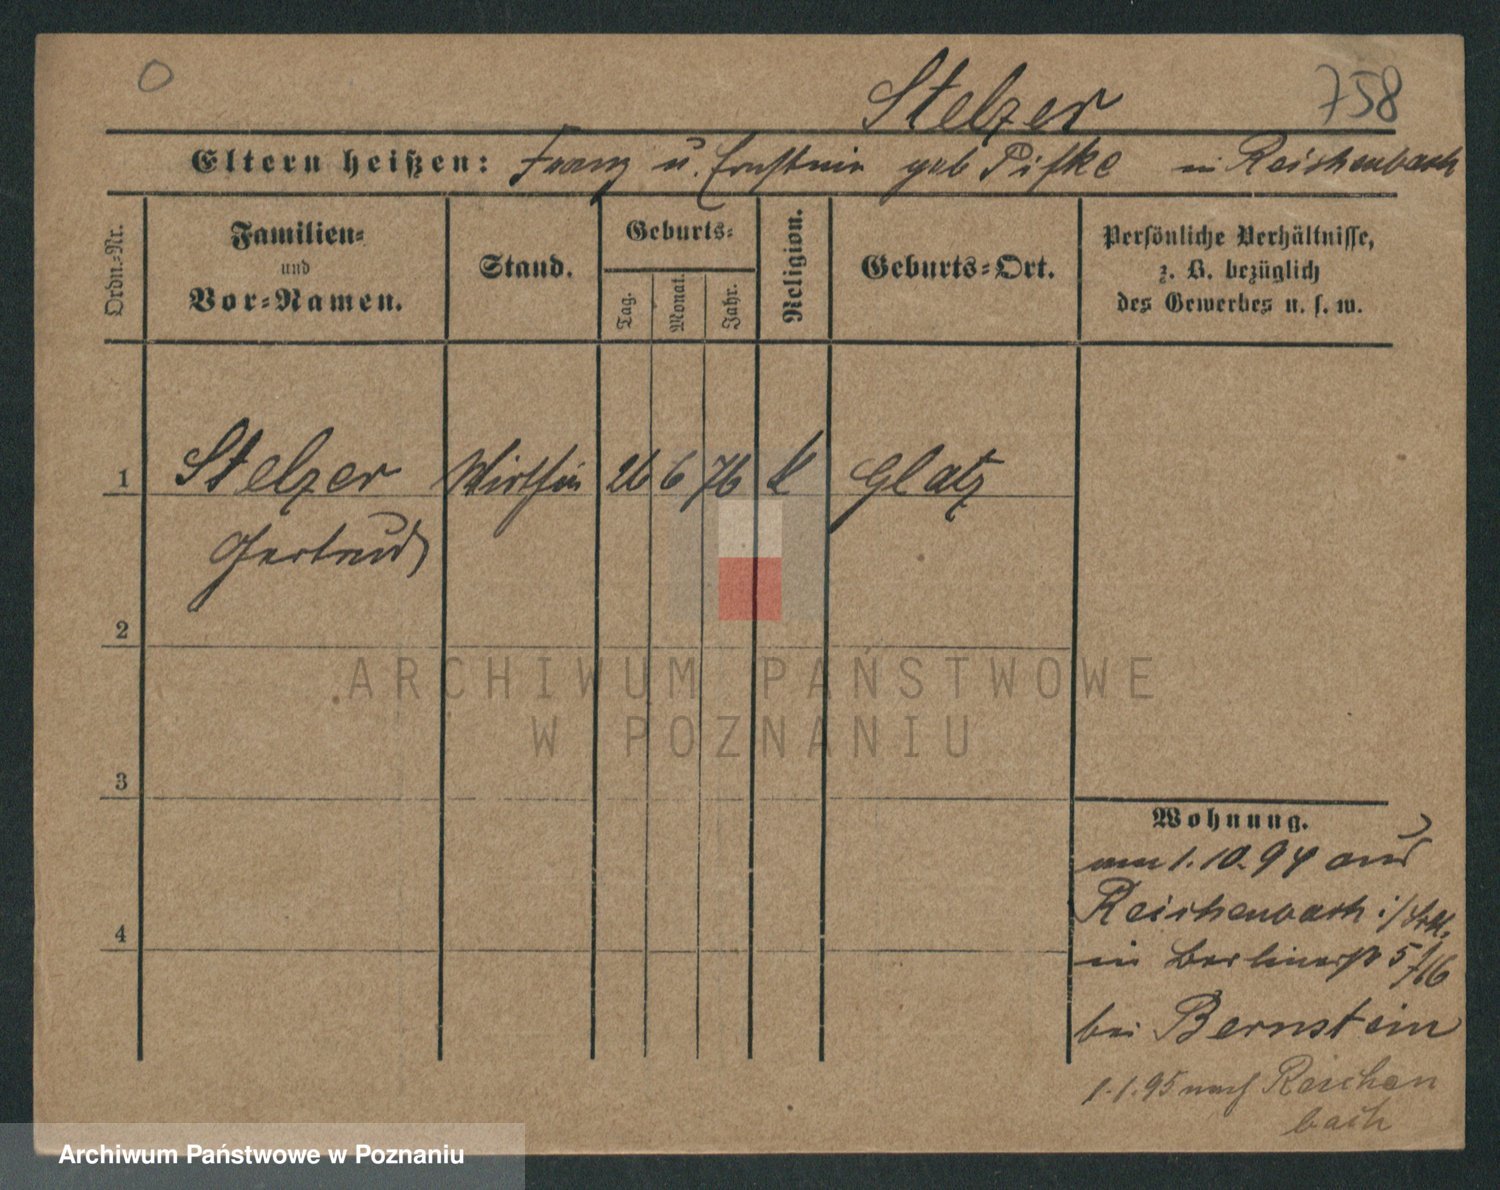 0
Stelzer
758
Eltern heißen: Franz u. Ernstine geb Pifke in Reichenbach
Ordn.-Nr.
Familien-
und
Vor-Namen.
Stand.
Geburts-
Tag.
Monat.
Jahr.
Religion.
Geburts-Ort.
Persönliche Verhältnisse,
z. B. bezüglich
des Gewerbes u. s. w.
1 Stelzer Wirthin 26 6 76 K Glatz
Gertrud
2
3
4
Wohnung.
am 1.10.94 aus
Reichenbach i/
in Berlinerstr 5
bei Bernstein
1.1.95 nach Reichen
bach
ARCHIWUM PAŃSTWOWE
W POZNANIU
Archiwum Państwowe w Poznaniu